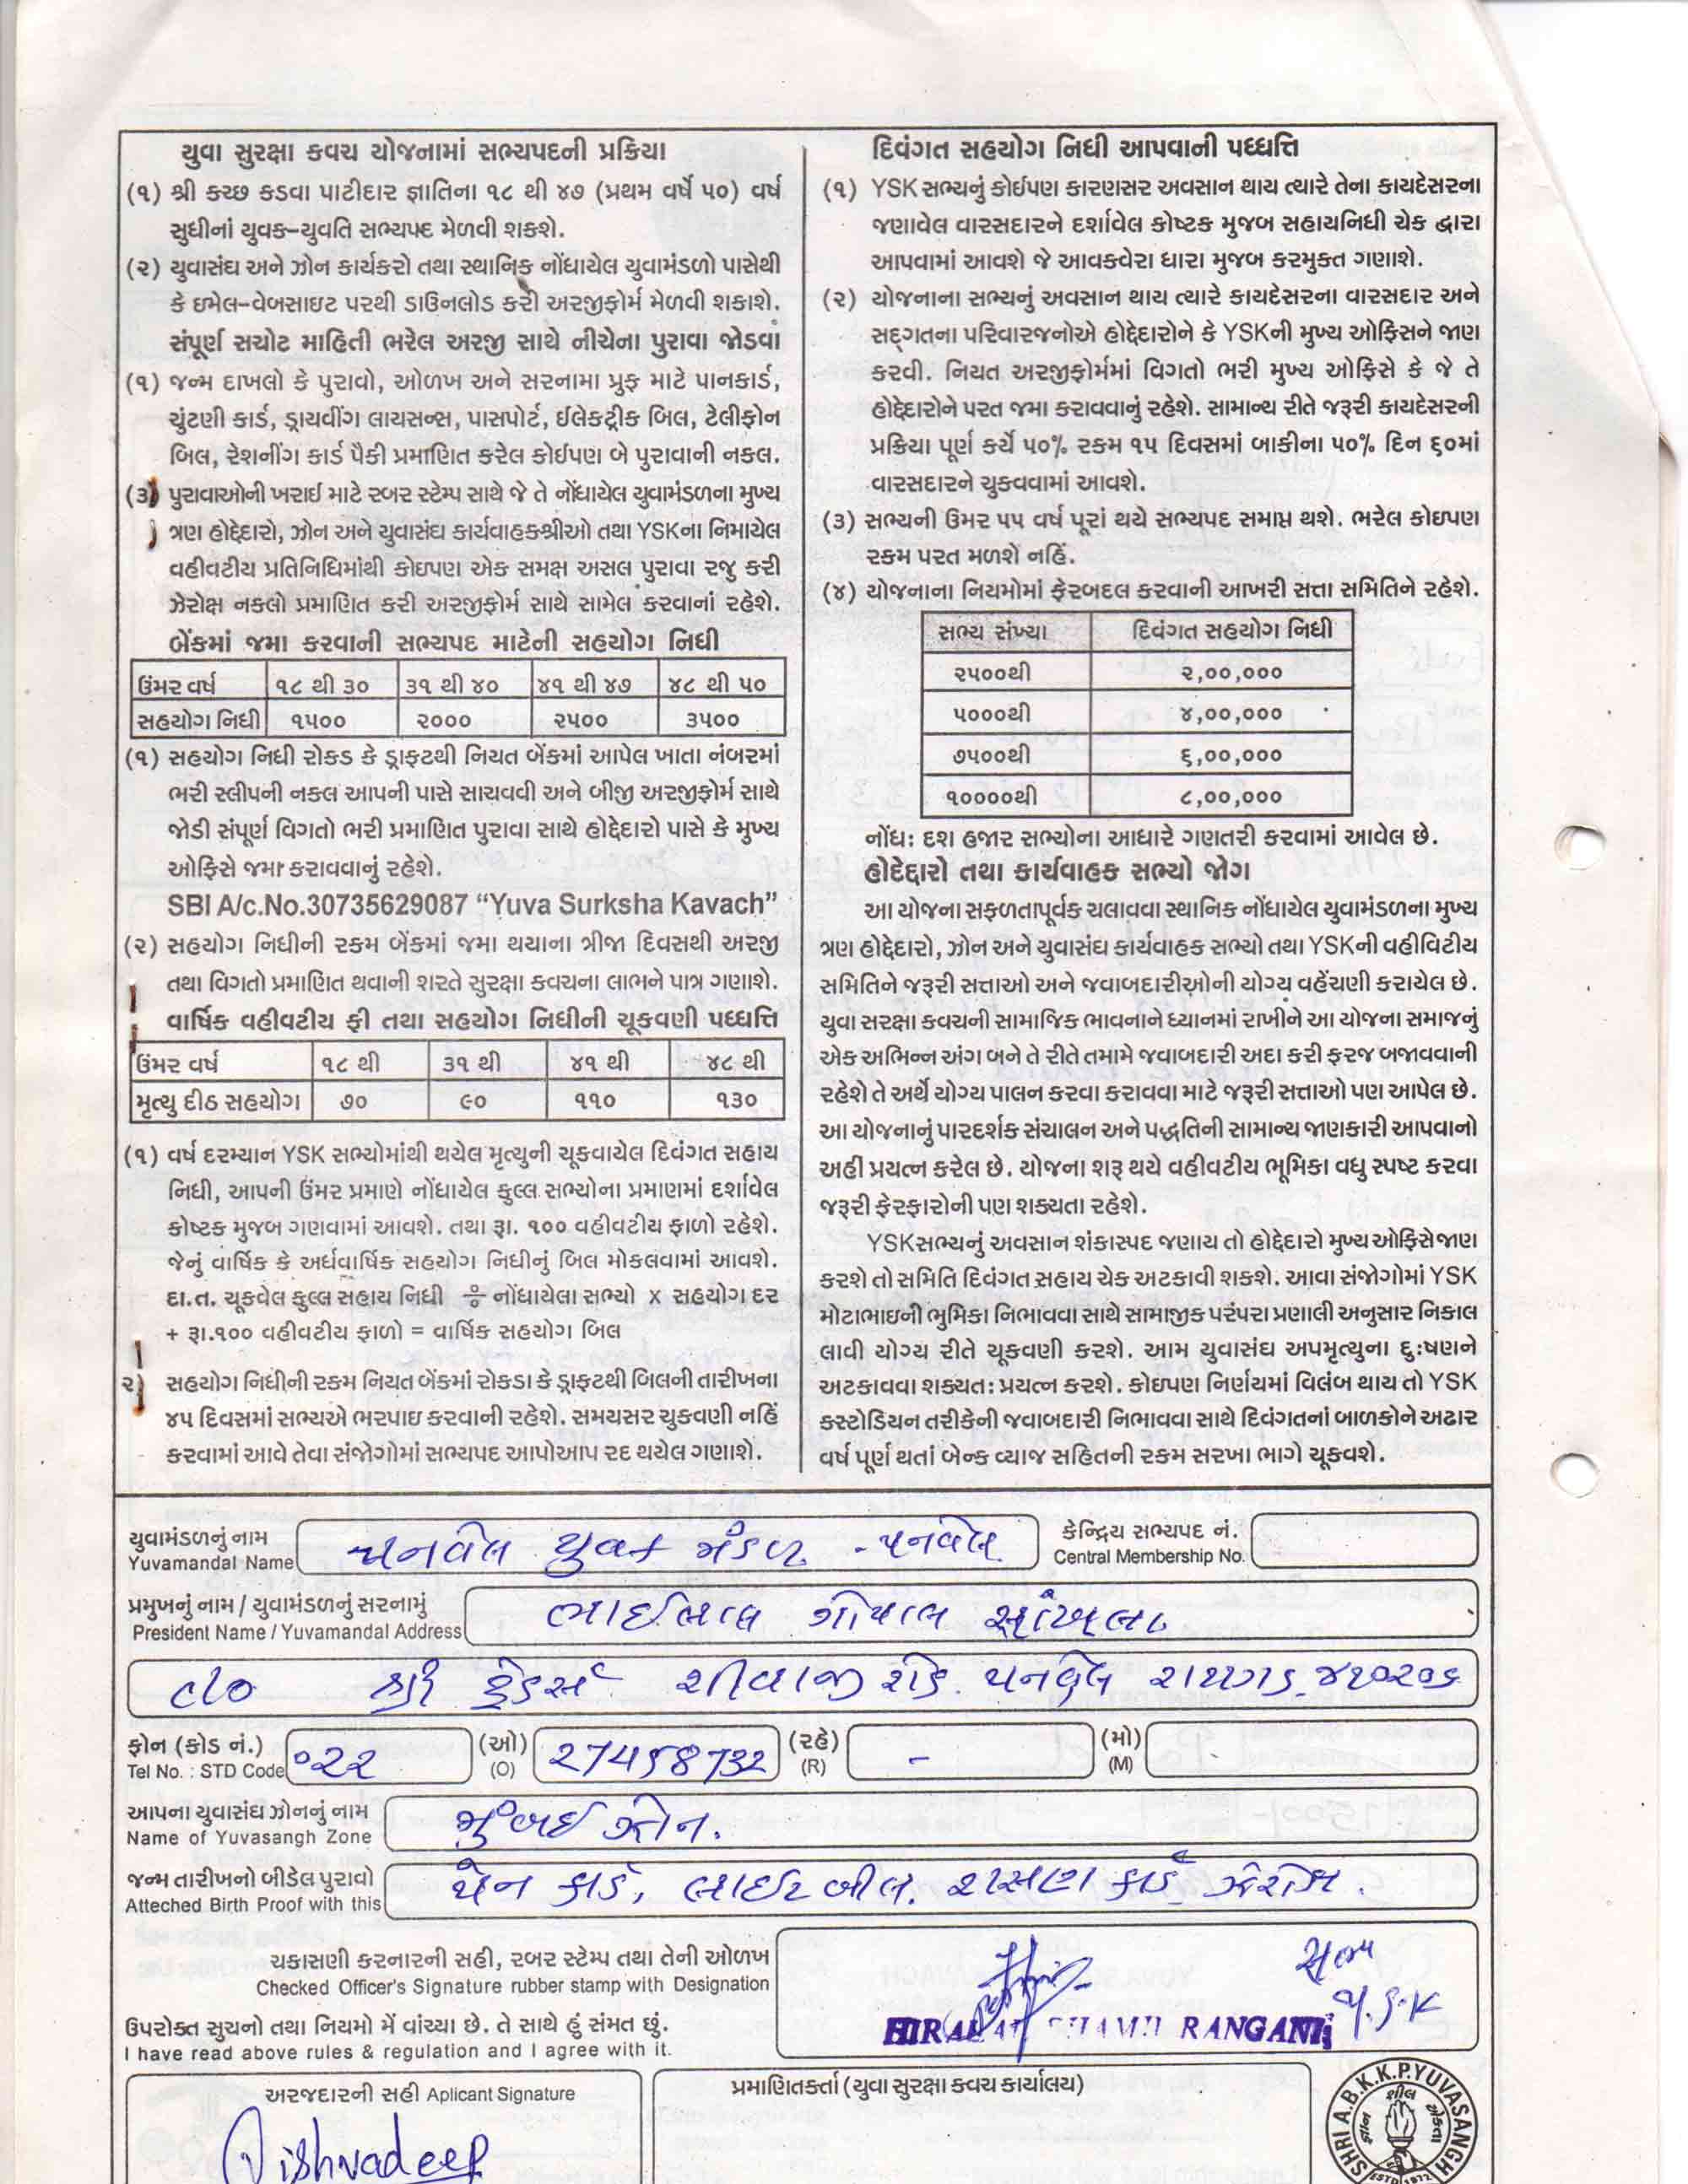 યુવા સુરક્ષા કવચ યોજનામાં સભ્યપદની પ્રક્રિયા
(૧) શ્રી કચ્છ કડવા પાટીદાર જ્ઞાતિના ૧૮ થી ૪૭ (પ્રથમ વર્ષે ૫૦) વર્ષ
સુધીનાં યુવક-યુવતિ સભ્યપદ મેળવી શકશે.
(૨) યુવાસંઘ અને ઝોન કાર્યકરો તથા સ્થાનિક નોંધાયેલ યુવામંડળો પાસેથી
કે ઇમેલ-વેબસાઇટ પરથી ડાઉનલોડ કરી અરજીફોર્મ મેળવી શકાશે.
સંપૂર્ણ સચોટ માહિતી ભરેલ અરજી સાથે નીચેના પુરાવા જોડવાં
(૧) જન્મ દાખલો કે પુરાવો, ઓળખ અને સરનામા પ્રુફ માટે પાનકાર્ડ,
ચુંટણી કાર્ડ, ડ્રાયવીંગ લાયસન્સ, પાસપોર્ટ, ઈલેકટ્રીક બિલ, ટેલીફોન
બિલ, રેશનીંગ કાર્ડ પૈકી પ્રમાણિત કરેલ કોઈપણ બે પુરાવાની નકલ.
(૩) પુરાવાઓની ખરાઈ માટે રબર સ્ટેમ્પ સાથે જે તે નોંધાયેલ યુવામંડળના મુખ્ય
ત્રણ હોદ્દેદારો, ઝોન અને યુવાસંઘ કાર્યવાહકશ્રીઓ તથા YSKના નિમાયેલ
વહીવટીય પ્રતિનિધિમાંથી કોઇપણ એક સમક્ષ અસલ પુરાવા રજુ કરી
ઝેરોક્ષ નકલો પ્રમાણિત કરી અરજીફોર્મ સાથે સામેલ કરવાનાં રહેશે.
બેંકમાં જમા કરવાની સભ્યપદ માટેની સહયોગ નિધી
ઉંમર વર્ષ ૧૮ થી ૩૦ ૩૧ થી ૪૦ ૪૧ થી ૪૭ ૪૮ થી ૫૦
સહયોગ નિધી ૧૫૦૦ ૨૦૦૦ ૨૫૦૦ ૩૫૦૦
(૧) સહયોગ નિધી રોકડ કે ડ્રાફટથી નિયત બેંકમાં આપેલ ખાતા નંબરમાં
ભરી સ્લીપની નકલ આપની પાસે સાચવવી અને બીજી અરજીફોર્મ સાથે
જોડી સંપૂર્ણ વિગતો ભરી પ્રમાણિત પુરાવા સાથે હોદ્દેદારો પાસે કે મુખ્ય
ઓફિસે જમા કરાવવાનું રહેશે.
SBI A/c.No.30735629087 “Yuva Surksha Kavach”
(૨) સહયોગ નિધીની રકમ બેંકમાં જમા થયાના ત્રીજા દિવસથી અરજી
તથા વિગતો પ્રમાણિત થવાની શરતે સુરક્ષા કવચના લાભને પાત્ર ગણાશે.
વાર્ષિક વહીવટીય ફી તથા સહયોગ નિધીની ચૂકવણી પધ્ધતિ
ઉંમર વર્ષ ૧૮ થી ૩૧ થી ૪૧ થી ૪૮ થી
મૃત્યુ દીઠ સહયોગ ૭૦ ૯૦ ૧૧૦ ૧૩૦
(૧) વર્ષ દરમ્યાન YSK સભ્યોમાંથી થયેલ મૃત્યુની ચૂકવાયેલ દિવંગત સહાય
નિધી, આપની ઉંમર પ્રમાણે નોંધાયેલ કુલ્લ સભ્યોના પ્રમાણમાં દર્શાવેલ
કોષ્ટક મુજબ ગણવામાં આવશે. તથા રૂા. ૧૦૦ વહીવટીય ફાળો રહેશે.
જેનું વાર્ષિક કે અર્ધવાર્ષિક સહયોગ નિધીનું બિલ મોકલવામાં આવશે.
દા.ત. ચૂકવેલ કુલ્લ સહાય નિધી ÷ નોંધાયેલા સભ્યો x સહયોગ દર
+ રૂા.૧૦૦ વહીવટીય ફાળો = વાર્ષિક સહયોગ બિલ
૨) સહયોગ નિધીની રકમ નિયત બેંકમાં રોકડા કે ડ્રાફટથી બિલની તારીખના
૪૫ દિવસમાં સભ્યએ ભરપાઇ કરવાની રહેશે. સમયસર ચુકવણી નહિં
કરવામાં આવે તેવા સંજોગોમાં સભ્યપદ આપોઆપ રદ થયેલ ગણાશે.
દિવંગત સહયોગ નિધી આપવાની પધ્ધતિ
(૧) YSK સભ્યનું કોઈપણ કારણસર અવસાન થાય ત્યારે તેના કાયદેસરના
જણાવેલ વારસદારને દર્શાવેલ કોષ્ટક મુજબ સહાયનિધી ચેક દ્વારા
આપવામાં આવશે જે આવકવેરા ધારા મુજબ કરમુક્ત ગણાશે.
(૨) યોજનાના સભ્યનું અવસાન થાય ત્યારે કાયદેસરના વારસદાર અને
સદ્ગતના પરિવારજનોએ હોદ્દેદારોને કે YSKની મુખ્ય ઓફિસને જાણ
કરવી. નિયત અરજીફોર્મમાં વિગતો ભરી મુખ્ય ઓફિસે કે જે તે
હોદ્દેદારોને પરત જમા કરાવવાનું રહેશે. સામાન્ય રીતે જરૂરી કાયદેસરની
પ્રક્રિયા પૂર્ણ કર્યે ૫૦% રકમ ૧૫ દિવસમાં બાકીના ૫૦% દિન ૬૦માં
વારસદારને ચુકવવામાં આવશે.
(૩) સભ્યની ઉમર ૫૫ વર્ષ પૂરાં થયે સભ્યપદ સમાપ્ત થશે. ભરેલ કોઇપણ
રકમ પરત મળશે નહિં.
(૪) યોજનાના નિયમોમાં ફેરબદલ કરવાની આખરી સત્તા સમિતિને રહેશે.
સભ્ય સંખ્યા દિવંગત સહયોગ નિધી
૨૫૦૦થી ૨,૦૦,૦૦૦
૫૦૦૦થી ૪,૦૦,૦૦૦
૭૫૦૦થી ૬,૦૦,૦૦૦
૧૦૦૦૦થી ૮,૦૦,૦૦૦
નોંધઃ દશ હજાર સભ્યોના આધારે ગણતરી કરવામાં આવેલ છે.
હોદેદ્દારો તથા કાર્યવાહક સભ્યો જોગ
આ યોજના સફળતાપૂર્વક ચલાવવા સ્થાનિક નોંધાયેલ યુવામંડળના મુખ્ય
ત્રણ હોદ્દેદારો, ઝોન અને યુવાસંઘ કાર્યવાહક સભ્યો તથા YSKની વહીવિટીય
સમિતિને જરૂરી સત્તાઓ અને જવાબદારીઓની યોગ્ય વહેંચણી કરાયેલ છે.
યુવા સરક્ષા કવચની સામાજિક ભાવનાને ધ્યાનમાં રાખીને આ યોજના સમાજનું
એક અભિન્ન અંગ બને તે રીતે તમામે જવાબદારી અદા કરી ફરજ બજાવવાની
રહેશે તે અર્થે યોગ્ય પાલન કરવા કરાવવા માટે જરૂરી સત્તાઓ પણ આપેલ છે.
આ યોજનાનું પારદર્શક સંચાલન અને પદ્ધતિની સામાન્ય જાણકારી આપવાનો
અહીં પ્રયત્ન કરેલ છે. યોજના શરૂ થયે વહીવટીય ભૂમિકા વધુ સ્પષ્ટ કરવા
જરૂરી ફેરફારોની પણ શક્યતા રહેશે.
YSKસભ્યનું અવસાન શંકાસ્પદ જણાય તો હોદ્દેદારો મુખ્ય ઓફિસે જાણ
કરશે તો સમિતિ દિવંગત સહાય ચેક અટકાવી શકશે. આવા સંજોગોમાં YSK
મોટાભાઇની ભુમિકા નિભાવવા સાથે સામાજીક પરંપરા પ્રણાલી અનુસાર નિકાલ
લાવી યોગ્ય રીતે ચૂકવણી કરશે. આમ યુવાસંઘ અપમૃત્યુના દુઃષણને
અટકાવવા શક્યતઃ પ્રયત્ન કરશે. કોઇપણ નિર્ણયમાં વિલંબ થાય તો YSK
કસ્ટોડિયન તરીકેની જવાબદારી નિભાવવા સાથે દિવંગતનાં બાળકોને અઢાર
વર્ષ પૂર્ણ થતાં બેન્ક વ્યાજ સહિતની રકમ સરખા ભાગે ચૂકવશે.
યુવામંડળનું નામ પનવેલ યુવક મંડળ - પનવેલ કેન્દ્રિય સભ્યપદ નં.
Yuvamandal Name Central Membership No.
પ્રમુખનું નામ / યુવામંડળનું સરનામું ભાઈલાલ ગોપાલ સાંખલા
President Name / Yuvamandal Address
c/o શ્રી ટ્રેડર્સ શીવાજી રોડ પનવેલ રાયગડ. ૪૧૦૨૦૬
ફોન (કોડ નં.) ૦૨૨ (ઓ) 27458732 (રહે) - (મો)
Tel No. : STD Code (O) (R) (M)
આપના યુવાસંઘ ઝોનનું નામ મુંબઈ ઝોન.
Name of Yuvasangh Zone
જન્મ તારીખનો બીડેલ પુરાવો પેન કાર્ડ, લાઈટ બીલ. રાસણ કાર્ડ ઝેરોક્ષ.
Atteched Birth Proof with this
ચકાસણી કરનારની સહી, રબર સ્ટેમ્પ તથા તેની ઓળખ
Checked Officer's Signature rubber stamp with Designation
સભ્ય
RANGANI
ઉપરોક્ત સુચનો તથા નિયમો મેં વાંચ્યા છે. તે સાથે હું સંમત છું.
I have read above rules & regulation and I agree with it.
અરજદારની સહી Aplicant Signature
Vishvadeep
પ્રમાણિતકર્તા (યુવા સુરક્ષા કવચ કાર્યાલય)
SHRI A.B.K.K.P.YUVASANGH
શીલ
જ્ઞાન
એકતા
ESTD.1972